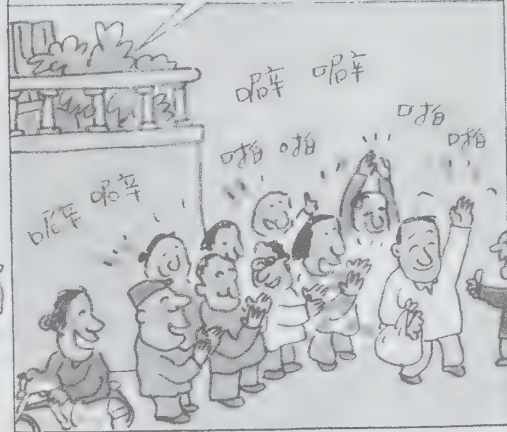 噼 噼
啪 啪
啪 啪
噼 噼